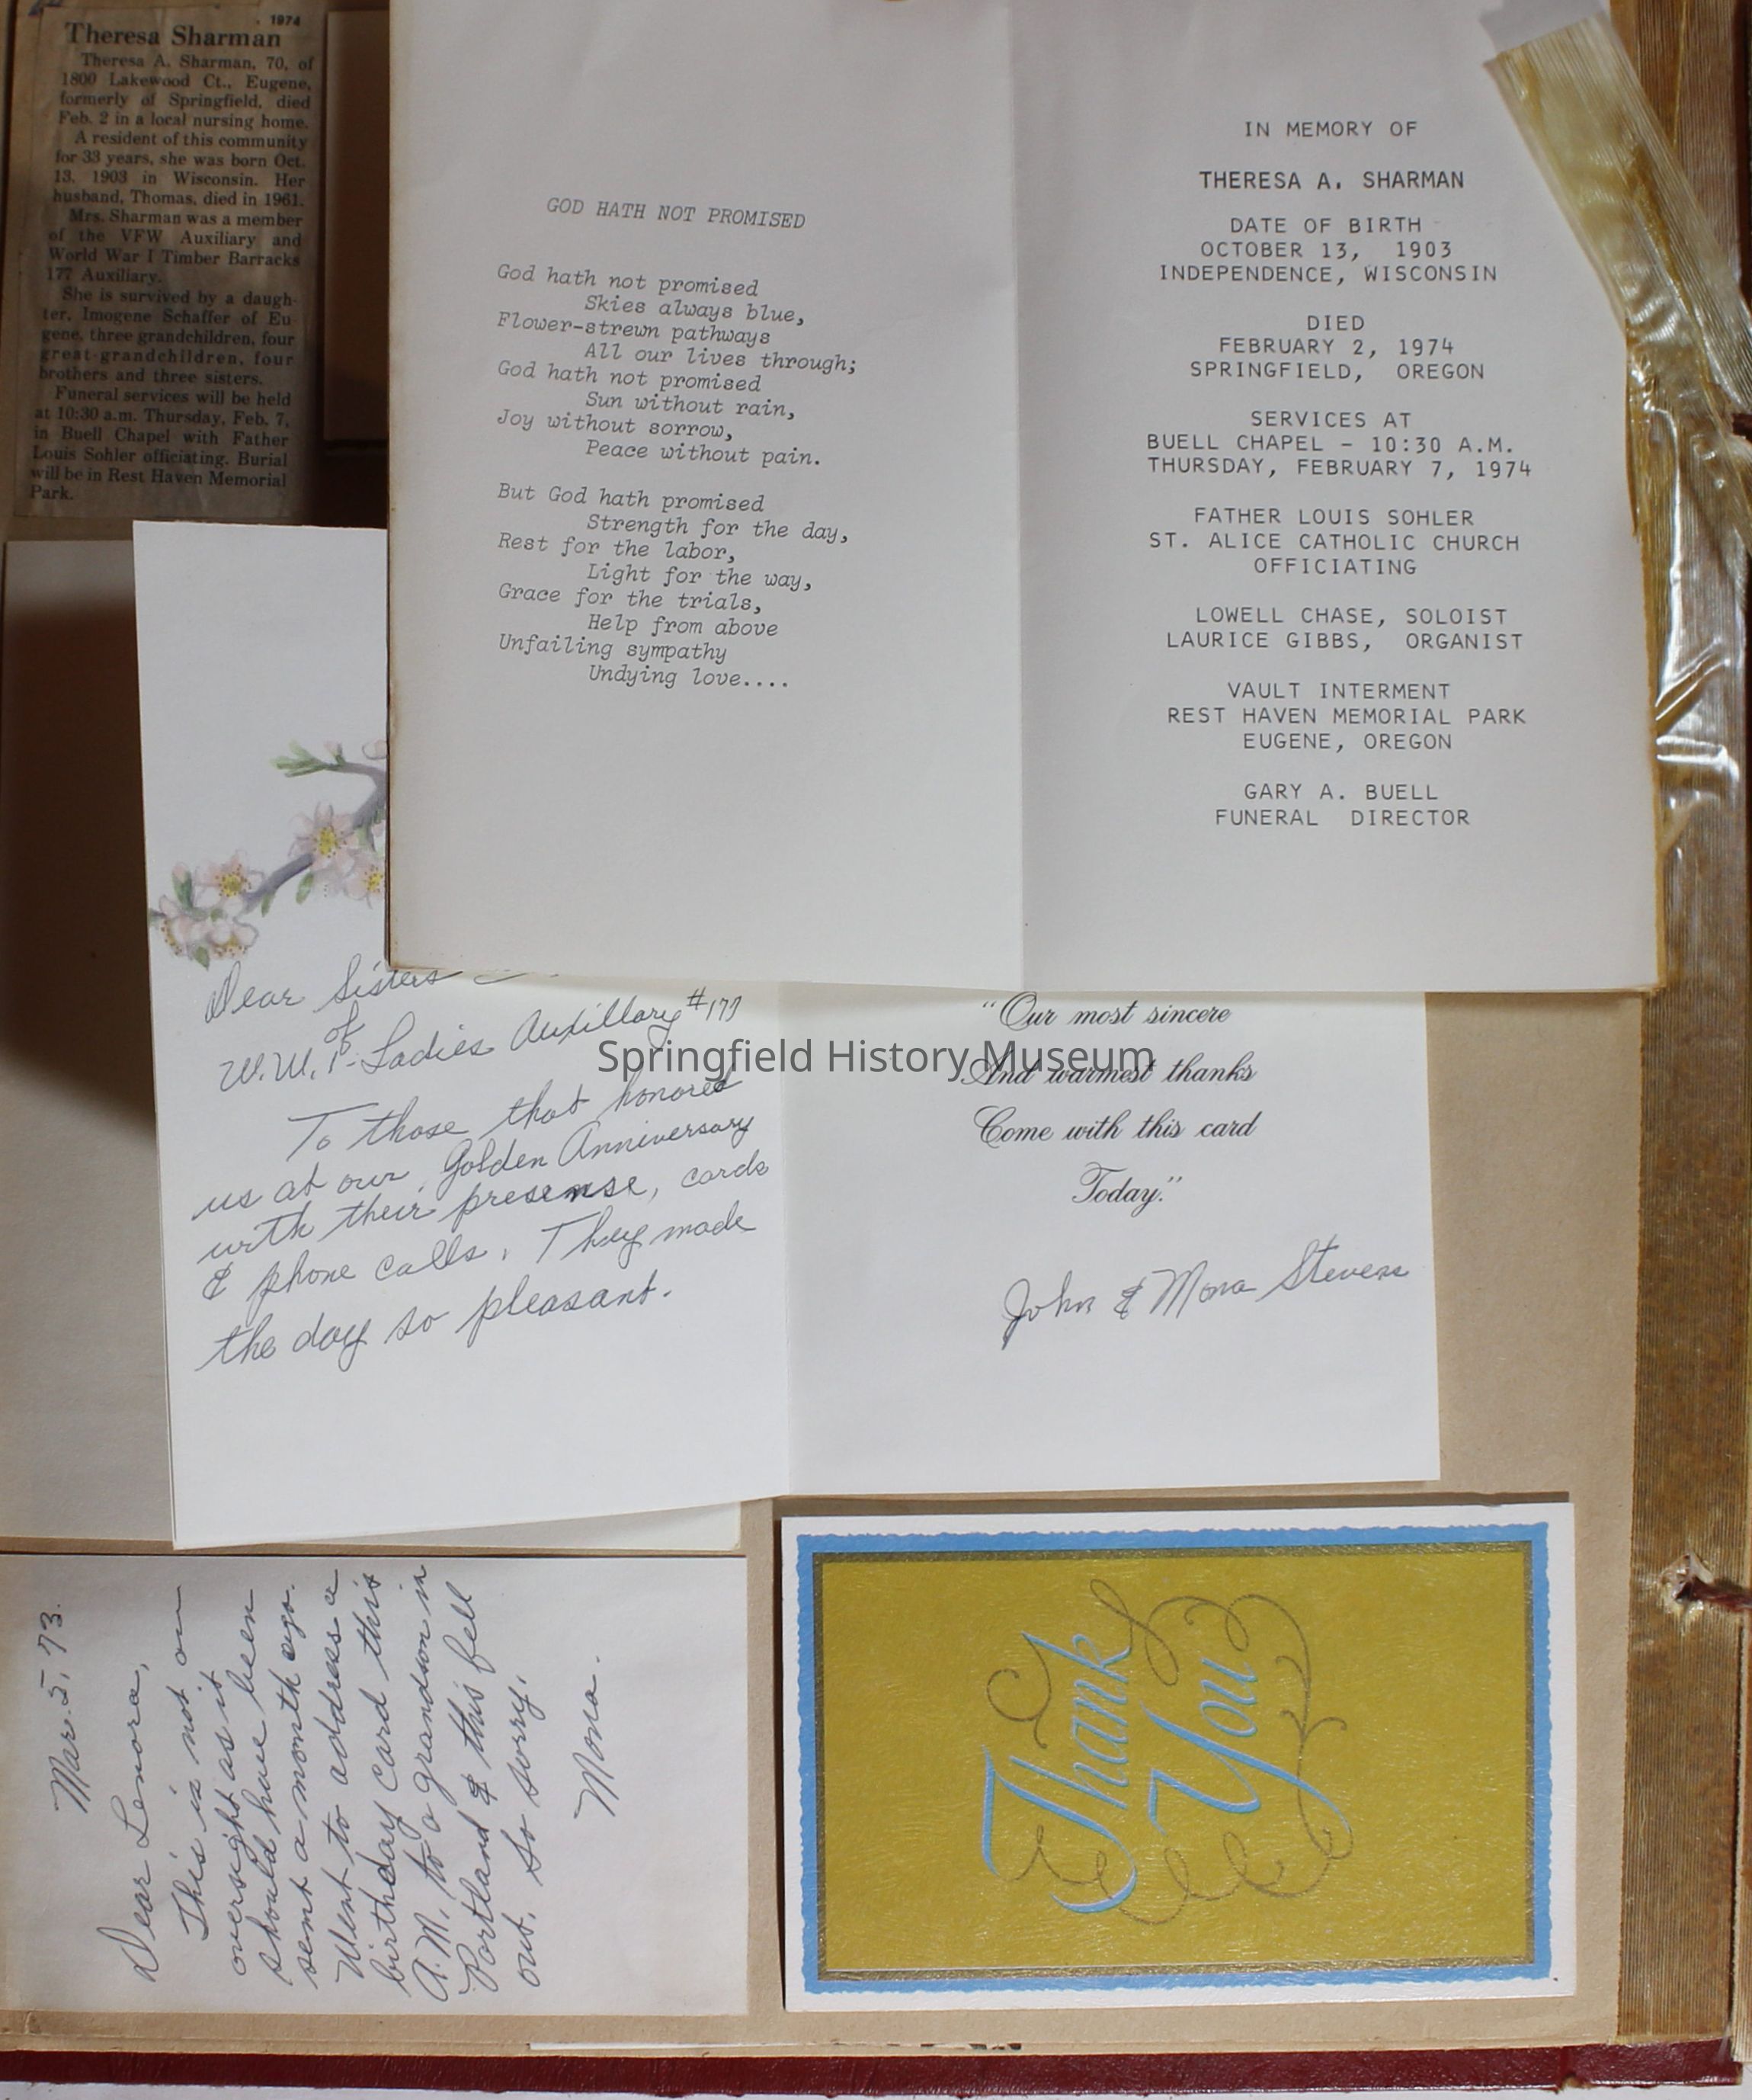 1974
Theresa Sharman
Theresa A. Sharman, 70, of
1800 Lakewood Ct., Eugene,
formerly of Springfield, died
Feb. 2 in a local nursing home.
A resident of this community
for 33 years, she was born Oct.
13, 1903 in Wisconsin. Her
husband, Thomas, died in 1961.
Mrs. Sharman was a member
of the VFW Auxiliary and
World War I Timber Barracks
177 Auxiliary.
She is survived by a daugh-
ter, Imogene Schaffer of Eu
gene, three grandchildren, four
great-grandchildren, four
brothers and three sisters.
Funeral services will be held
at 10:30 a.m. Thursday, Feb. 7,
in Buell Chapel with Father
Louis Sohler officiating. Burial
will be in Rest Haven Memorial
Park.
GOD HATH NOT PROMISED
God hath not promised
Skies always blue,
Flower-strewn pathways
All our lives through;
God hath not promised
Sun without rain,
Joy without sorrow,
Peace without pain.
But God hath promised
Strength for the day,
Rest for the labor,
Light for the way,
Grace for the trials,
Help from above
Unfailing sympathy
Undying love....
IN MEMORY OF
THERESA A. SHARMAN
DATE OF BIRTH
OCTOBER 13, 1903
INDEPENDENCE, WISCONSIN
DIED
FEBRUARY 2, 1974
SPRINGFIELD, OREGON
SERVICES AT
BUELL CHAPEL - 10:30 A.M.
THURSDAY, FEBRUARY 7, 1974
FATHER LOUIS SOHLER
ST. ALICE CATHOLIC CHURCH
OFFICIATING
LOWELL CHASE, SOLOIST
LAURICE GIBBS, ORGANIST
VAULT INTERMENT
REST HAVEN MEMORIAL PARK
EUGENE, OREGON
GARY A. BUELL
FUNERAL DIRECTOR
Dear Sisters
of
W.W. 1 - Ladies Auxillary #177
To those that honored
us at our Golden Anniversary
with their presense, cards
& phone calls. They made
the day so pleasant.
"Our most sincere
And warmest thanks
Come with this card
Today."
John & Mona Stevens
Springfield History Museum
Mar. 5, 73.
Dear Lenora,
This is not an
oversight as it
should have been
sent a month ago.
Went to address a
birthday card this
A.M. to a grandson in
Portland & this fell
out. So sorry.
Mona.
Thank
You